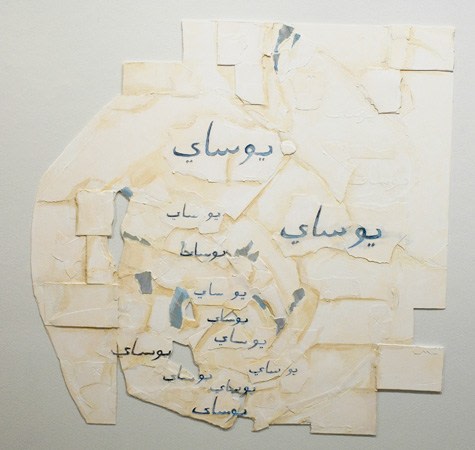 يوساي
يوساي
يوساي
يوساي
يوساي
يوساي
يوساي
يوساي
يوساي
يوساي
يوساي